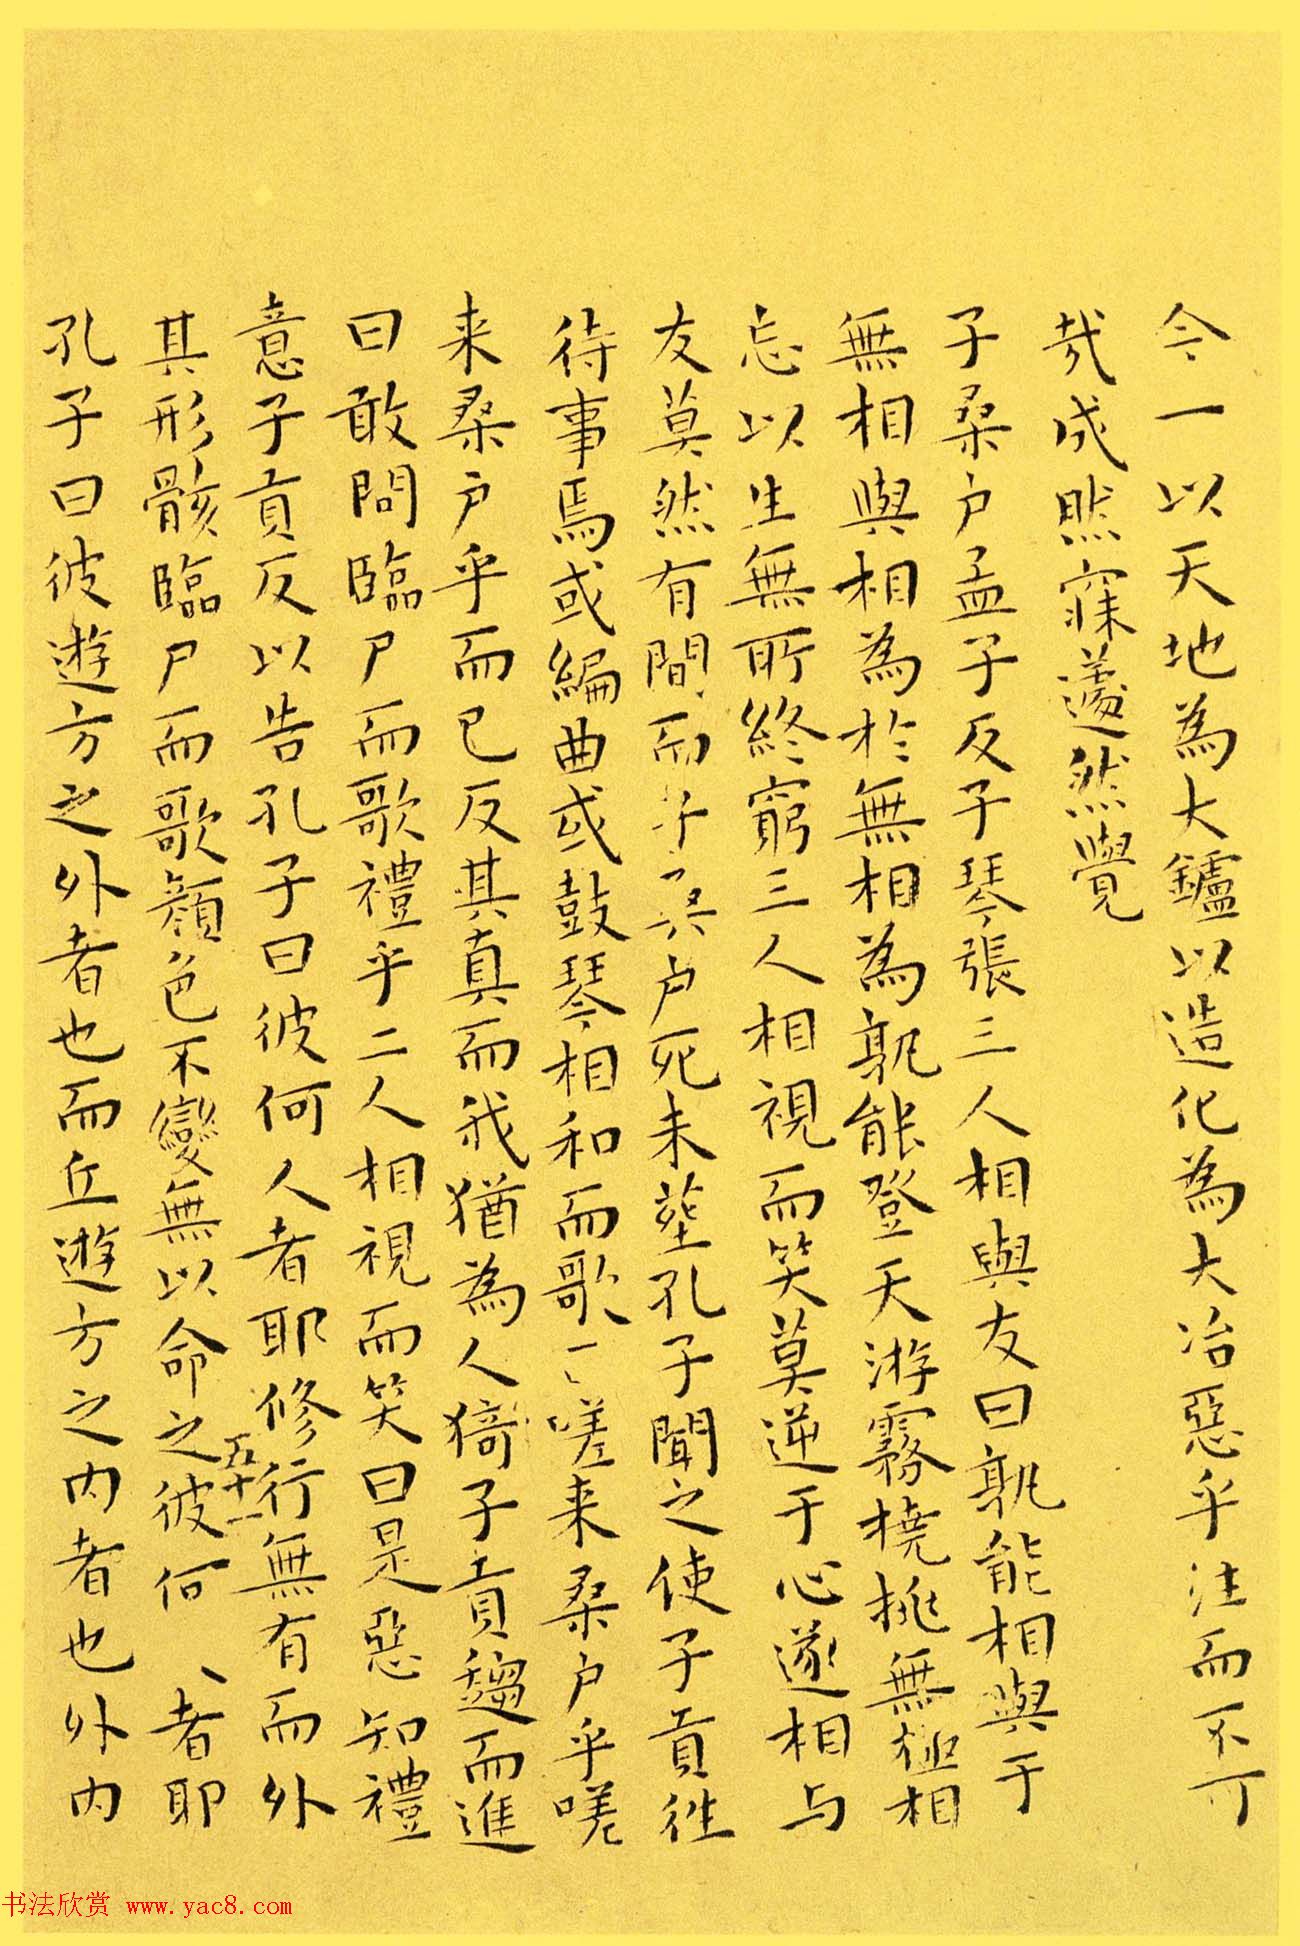 今一以天地為大鑪以造化為大冶惡乎注而不可
哉成然寐蘧然覺
子桑户孟子反子琴張三人相與友曰孰能相與于
無相與相為於無相為孰能登天游霧撓挑無極相
忘以生無所終窮三人相視而笑莫逆于心遂相与
友莫然有間而子桑户死未塟孔子聞之使子貢往
待事焉或編曲或鼓琴相和而歌曰嗟来桑户乎嗟
来桑户乎而已反其真而我猶為人猗子貢趨而進
曰敢問臨尸而歌禮乎二人相視而笑曰是惡知禮
意子貢反以告孔子曰彼何人者耶修行無有而外
五十一
其形骸臨尸而歌顔色不變無以命之彼何、者耶
孔子曰彼遊方之外者也而丘遊方之内者也外内
书法欣赏 www.yac8.com